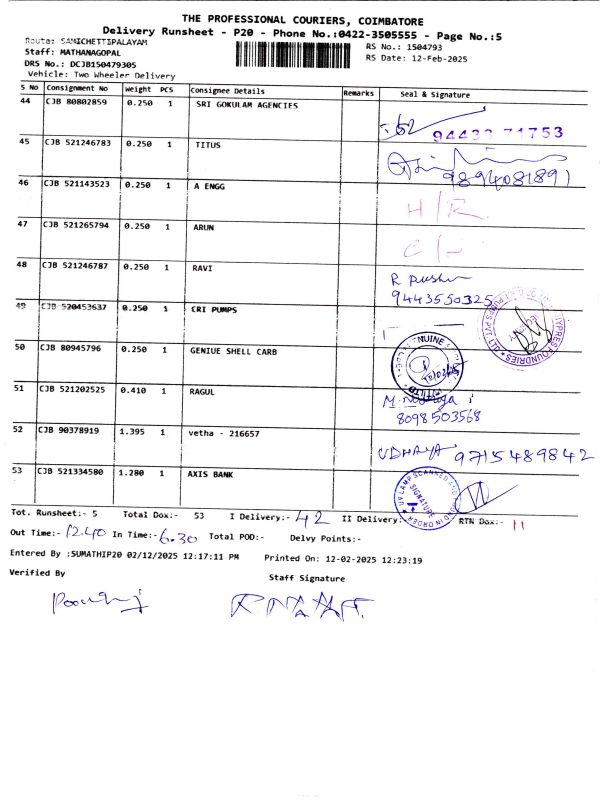 THE PROFESSIONAL COURIERS, COIMBATORE
Delivery Runsheet - P20 - Phone No.:0422-3505555 - Page No.:5
Route: SAMICHETTIPALAYAM
RS No.: 1504793
Staff: MATHANAGOPAL
RS Date: 12-Feb-2025
DRS No.: DCJB150479305
Vehicle: Two Wheeler Delivery
S No Consignment No Weight PCS Consignee Details Remarks Seal & Signature
44 CJB 80802859 0.250 1 SRI GOKULAM AGENCIES
94433 71753
45 CJB 521246783 0.250 1 TITUS
9894081891
46 CJB 521143523 0.250 1 A ENGG H/R
47 CJB 521265794 0.250 1 ARUN
48 CJB 521246787 0.250 1 RAVI
9443550325
49 CJB 520453637 0.250 1 CRI PUMPS
50 CJB 80945796 0.250 1 GENIUE SHELL CARB
51 CJB 521202525 0.410 1 RAGUL
8098503568
52 CJB 90378919 1.395 1 vetha - 216657
UDHAYA 9715489842
53 CJB 521334580 1.280 1 AXIS BANK
SIGNATURE
Tot. Runsheet:- 5 Total Dox:- 53 I Delivery:- 42 II Delivery:- RTN Dox:- 11
Out Time:- 12.40 In Time:- 6.30 Total POD:- Delvy Points:-
Entered By :SUMATHIP20 02/12/2025 12:17:11 PM Printed On: 12-02-2025 12:23:19
Verified By
Staff Signature